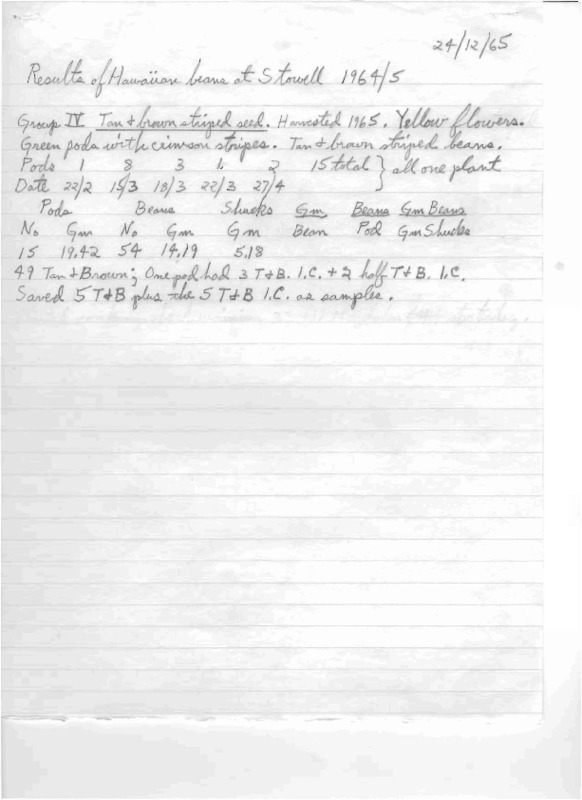 24/12/65
Results of Hawaiian beans at Stowell 1964/5
Group IV Tan & brown striped seed. Harvested 1965. Yellow flowers.
Green pods with crimson stripes. Tan & brown striped beans.
Pods 1 8 3 1 2 15 total } all one plant
Date 22/2 15/3 18/3 22/3 27/4
Pods Beans Shucks Gm Beans Gm Beans
No Gm No Gm Gm Bean Pod Gm Shucks
15 19.42 54 14.19 5.18
49 Tan & Brown; One pod had 3 T&B. I.C. + 2 half T&B. I.C.
Saved 5 T&B plus the 5 T&B I.C. as samples.